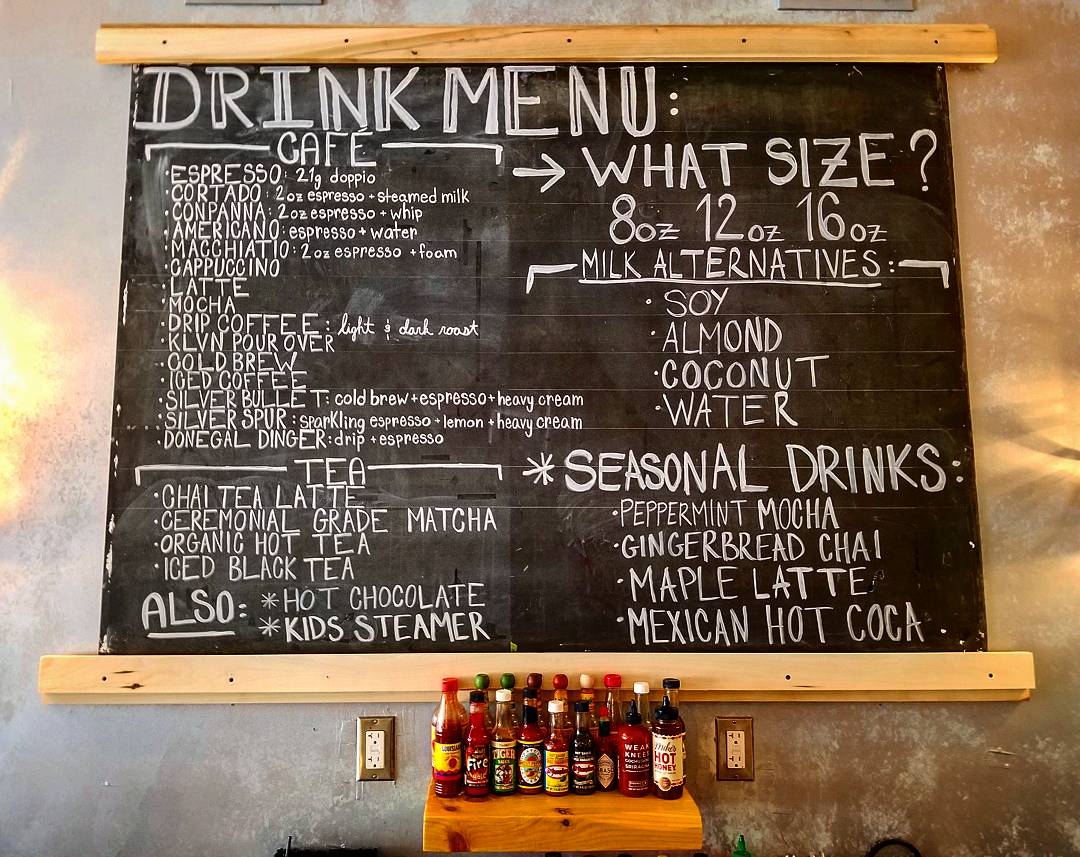 DRINK MENU:
CAFÉ
·ESPRESSO: 21g doppio
·CORTADO: 2oz espresso + steamed milk
·CONPANNA: 2oz espresso + whip
·AMERICANO: espresso + water
·MACCHIATIO: 2oz espresso + foam
·CAPPUCCINO
·LATTE
·MOCHA
·DRIP COFFEE: light & dark roast
·KLVN POUR OVER
·COLD BREW
·ICED COFFEE
·SILVER BULLET: cold brew + espresso + heavy cream
·SILVER SPUR: sparkling espresso + lemon + heavy cream
·DONEGAL DINGER: drip + espresso
TEA
·CHAI TEA LATTE
·CEREMONIAL GRADE MATCHA
·ORGANIC HOT TEA
·ICED BLACK TEA
ALSO: *HOT CHOCOLATE
*KIDS STEAMER
→ WHAT SIZE?
8oz 12oz 16oz
MILK ALTERNATIVES:
·SOY
·ALMOND
·COCONUT
·WATER
*SEASONAL DRINKS:
·PEPPERMINT MOCHA
·GINGERBREAD CHAI
·MAPLE LATTE
·MEXICAN HOT COCA
LOUISIANA
Fire
TIGER
SAUCE
WEAK
KNEES
GOCHUJANG
SRIRACHA
Mike's
HOT
HONEY